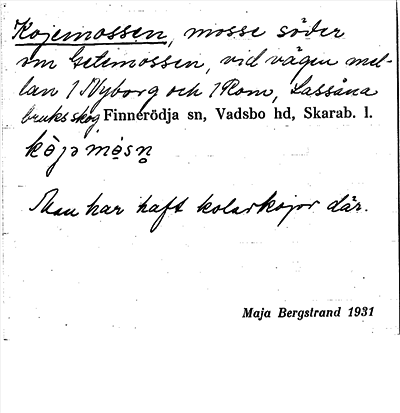 Kojemossen, mosse söder
om Getemossen, vid vägen mel-
lan 1 Nyborg och 1 Rom, Laxssåna
bruks skog Finnerödja sn, Vadsbo hd, Skarab. l.
kòjəmòsn̥
Man har haft kolarkojor där.
Maja Bergstrand 1931